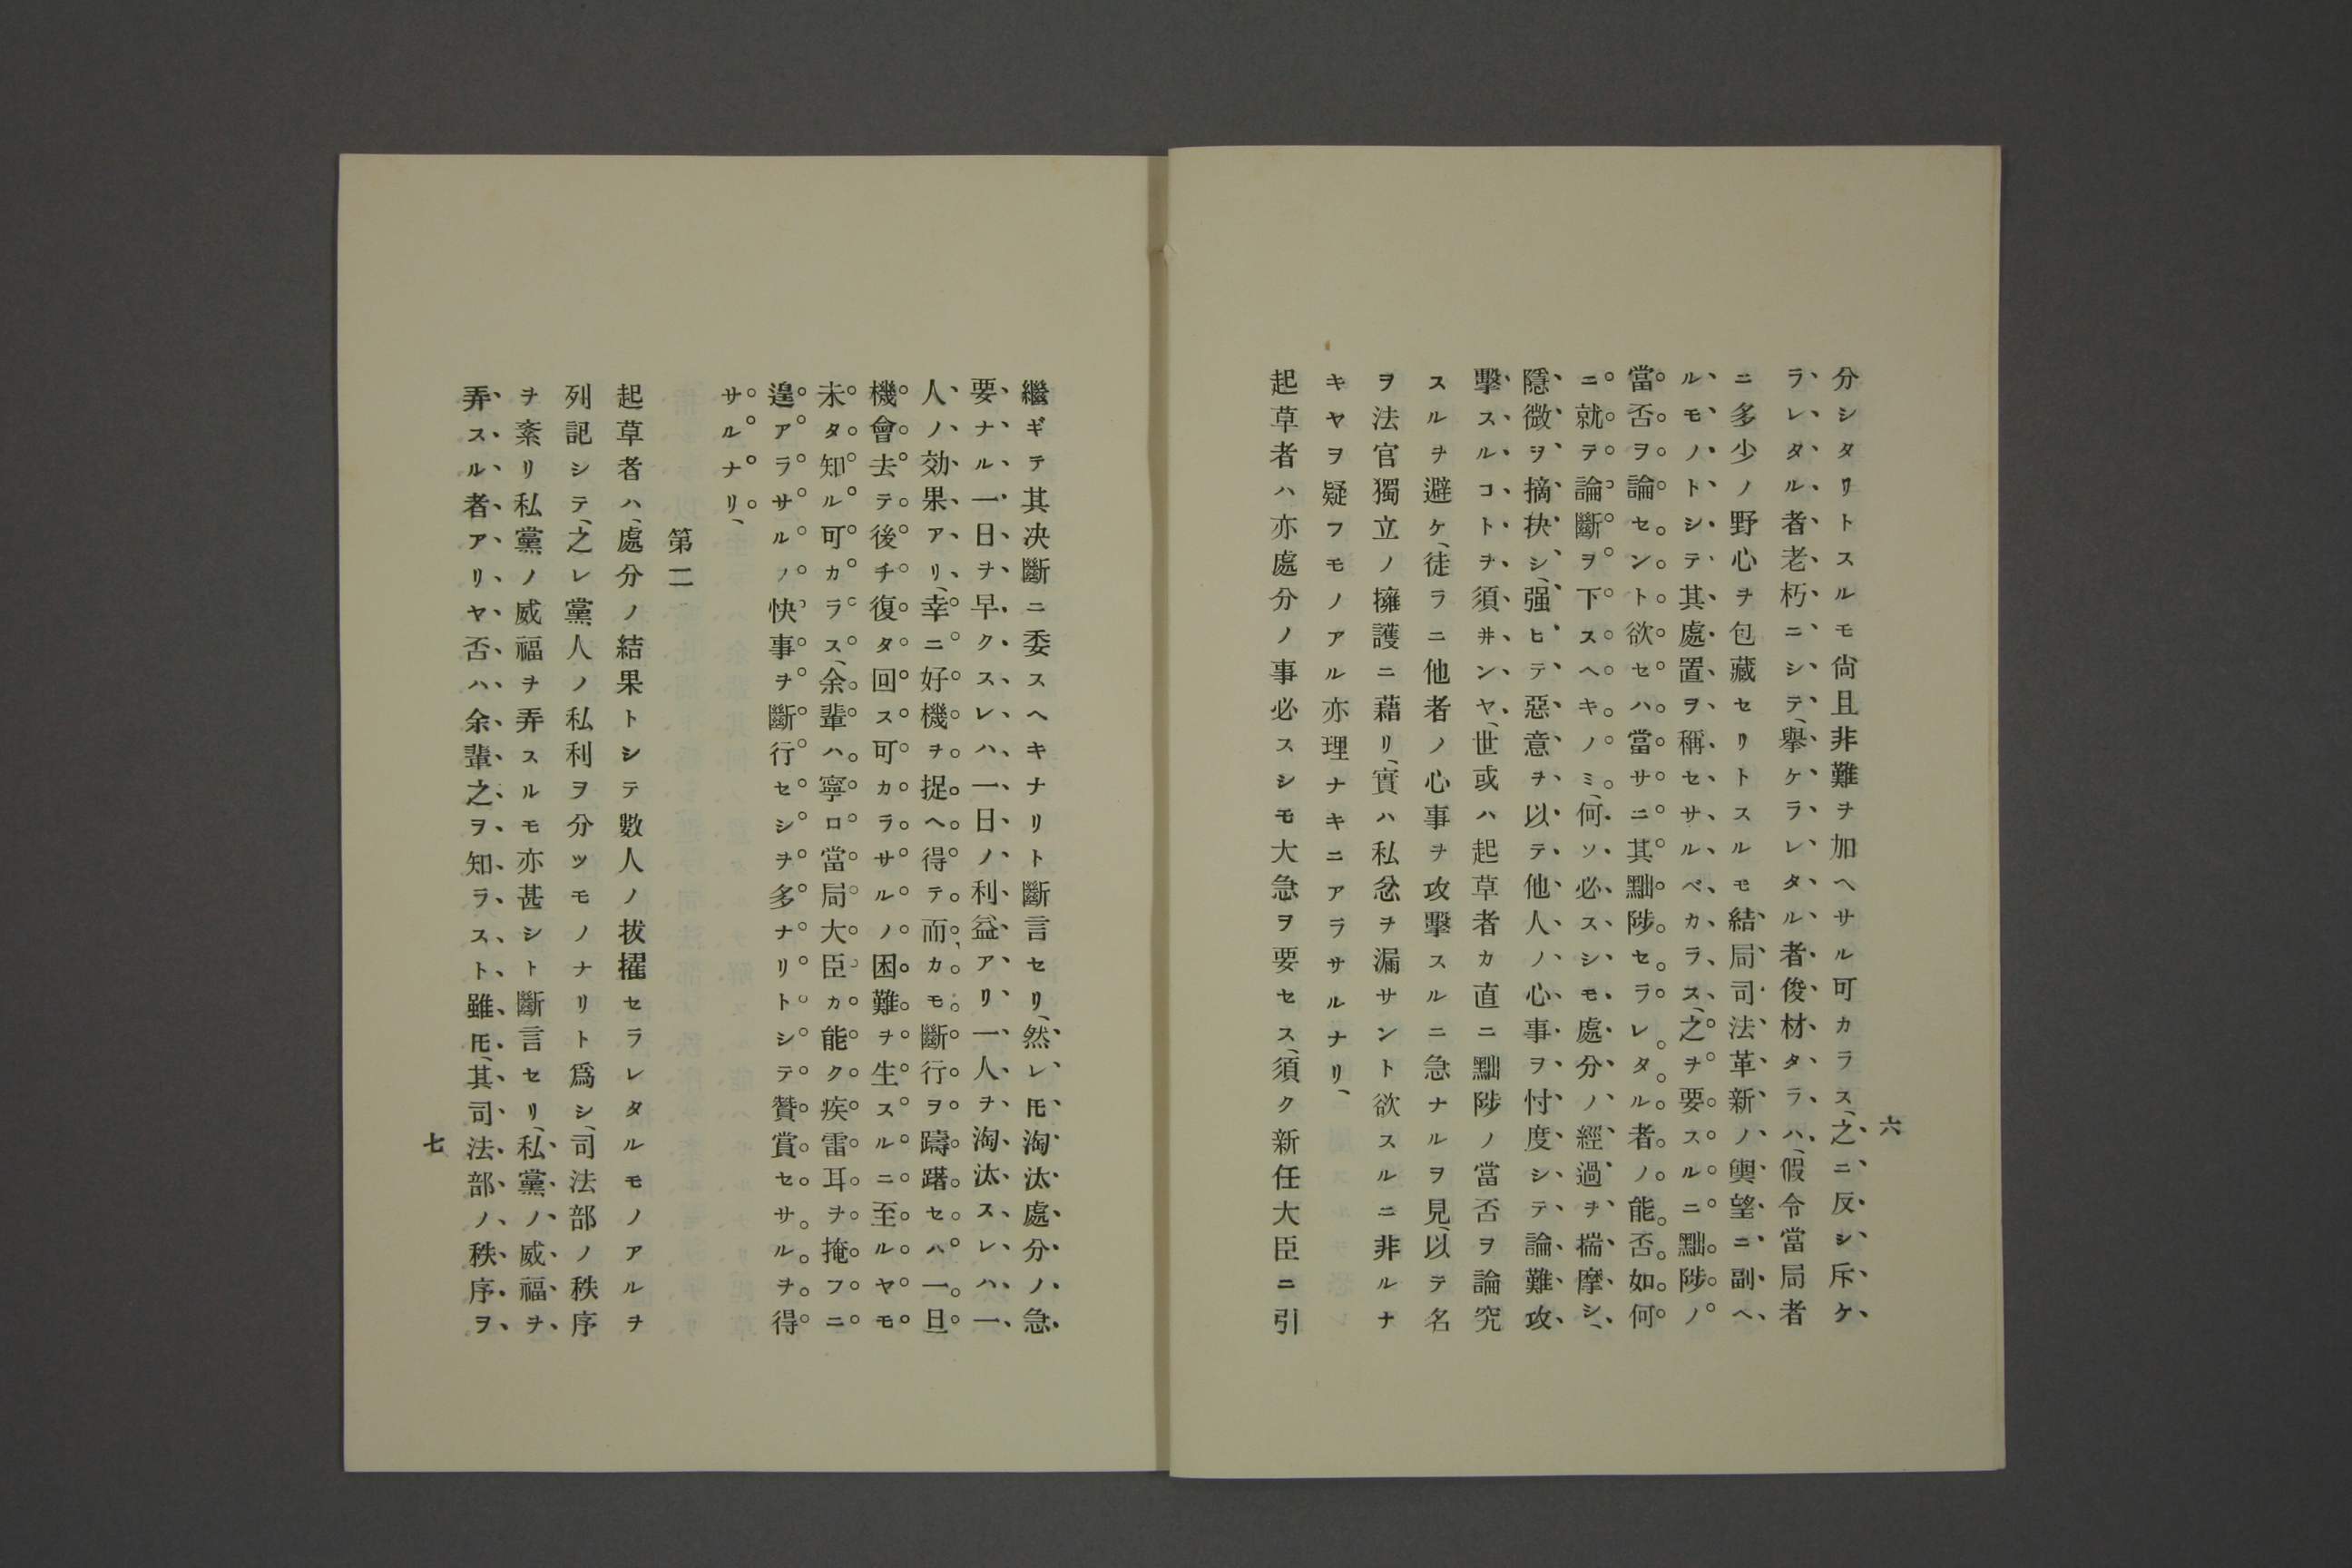 六
分シタリトスルモ尙且非難ヲ加ヘサル可カラス、之ニ反シ斥ケ
ラレタル者老朽ニシテ、擧ケラレタル者俊材タラハ、假令當局者
ニ多少ノ野心ヲ包藏セリトスルモ結局司法革新ノ輿望ニ副ヘ
ルモノトシテ其處置ヲ稱セサルベカラス、之ヲ要スルニ黜陟ノ
當否ヲ論セント欲セハ當サニ其黜陟セラレタル者ノ能否如何
ニ就テ論斷ヲ下スヘキノミ、何ソ必スシモ處分ノ經過ヲ揣摩シ、
隱微ヲ摘抉シ、强ヒテ惡意ヲ以テ他人ノ心事ヲ忖度シテ論難攻
擊スルコトヲ須井ンヤ、世或ハ起草者カ直ニ黜陟ノ當否ヲ論究
スルヲ避ケ、徒ラニ他者ノ心事ヲ攻擊スルニ急ナルヲ見、以テ名
ヲ法官獨立ノ擁護ニ藉リ、實ハ私忿ヲ漏サント欲スルニ非ルナ
キヤヲ疑フモノアル亦理ナキニアラサルナリ、
起草者ハ亦處分ノ事必スシモ大急ヲ要セス、須ク新任大臣ニ引
繼ギテ其决斷ニ委スヘキナリト斷言セリ、然レ𪜈淘汰處分ノ急
要ナル一日ヲ早クスレハ一日ノ利益アリ一人ヲ淘汰スレハ一
人ノ効果アリ、幸ニ好機ヲ捉ヘ得テ而カモ斷行ヲ躊躇セハ一旦
機會去テ後チ復タ回ス可カラサルノ困難ヲ生スルニ至ルヤモ
未タ知ル可カラス、余輩ハ寧ロ當局大臣カ能ク疾雷耳ヲ掩フニ
遑アラサルノ快事ヲ斷行セシヲ多ナリトシテ贊賞セサルヲ得
サルナリ、
第二
起草者ハ、處分ノ結果トシテ數人ノ拔擢セラレタルモノアルヲ
列記シテ、之レ黨人ノ私利ヲ分ツモノナリト爲シ、司法部ノ秩序
ヲ紊リ私黨ノ威福ヲ弄スルモ亦甚シト斷言セリ、私黨ノ威福ヲ
弄スル者アリヤ否ハ余輩之ヲ知ラスト雖𪜈、其司法部ノ秩序ヲ
七